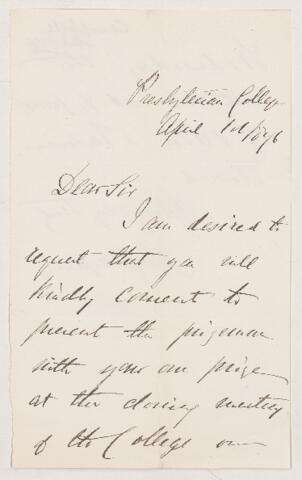 Presbyterian College
April 1st/876
Dear Sir
I am desired to
request that you will
kindly consent to
present the prizeman
with your own prize
at the closing meeting
of the College on